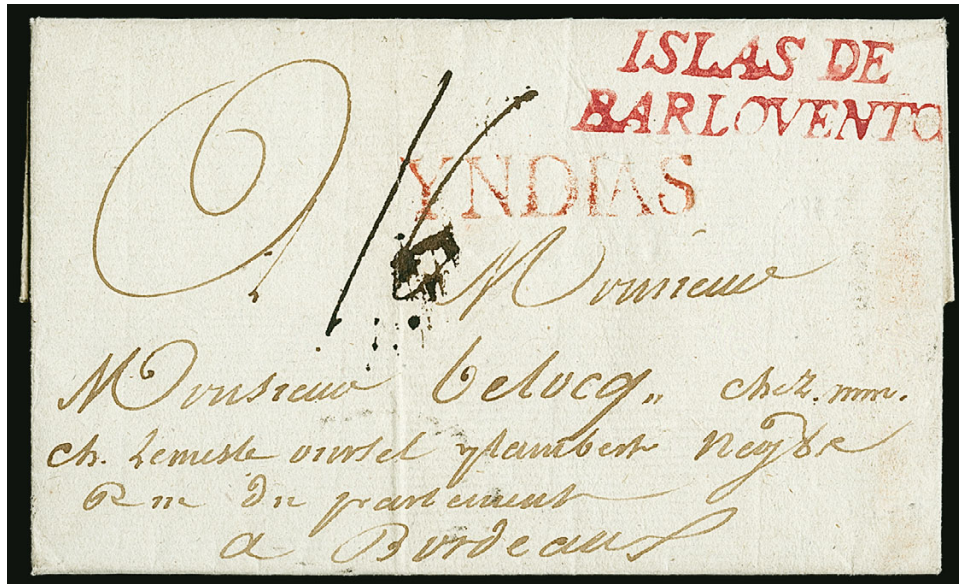 ISLAS DE
BARLOVENTO
YNDIAS
Monsieur
Monsieur belocq,, chez. mm.
ch. Lemesle oursel Lambert
Rue Du parlement
a Bordeaux